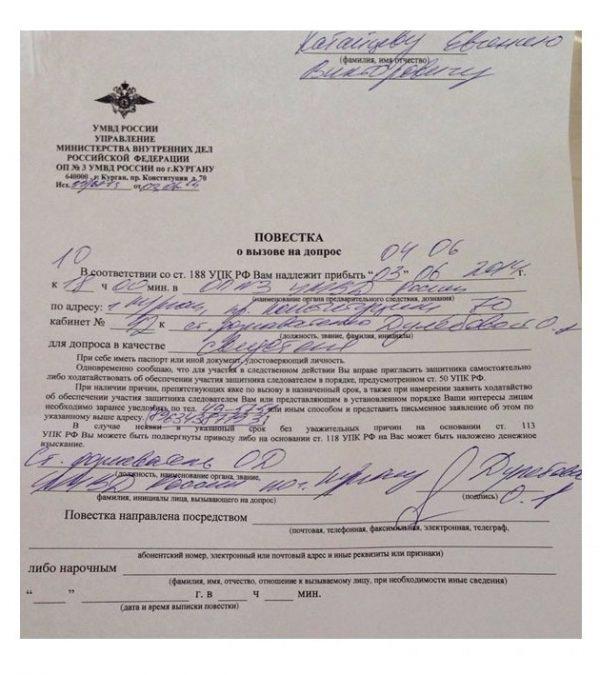 Евгению
(фамилия, имя отчество)
Викторовичу
УМВД РОССИИ
УПРАВЛЕНИЕ
МИНИСТЕРСТВА ВНУТРЕННИХ ДЕЛ
РОССИЙСКОЙ ФЕДЕРАЦИИ
ОП № 3 УМВД РОССИИ по г.КУРГАНУ
640000 г. Курган, пр. Конституции д. 70
Исх. от 03.06.14
ПОВЕСТКА
о вызове на допрос
10 04 06
В соответствии со ст. 188 УПК РФ Вам надлежит прибыть “03” 06 2014 г.
к 18 ч 00 мин. в ОП№3 УМВД России
(наименование органа предварительного следствия, дознания)
по адресу: г Курган, пр. Конституции 70
кабинет № к ст. дознавателю Дулебовой О.А
(должность, звание, фамилия, инициалы)
для допроса в качестве свидетеля
При себе иметь паспорт или иной документ, удостоверяющий личность.
Одновременно сообщаю, что для участия в следственном действии Вы вправе пригласить защитника самостоятельно
либо ходатайствовать об обеспечении участия защитника следователем в порядке, предусмотренном ст. 50 УПК РФ.
При наличии причин, препятствующих явке по вызову в назначенный срок, а также при намерении заявить ходатайство
об обеспечении участия защитника следователем Вам или представляющим в установленном порядке Ваши интересы лицам
необходимо заранее уведомить по тел. или иным способом и представить письменное заявление об этом по
указанному выше адресу.
В случае неявки в указанный срок без уважительных причин на основании ст. 113
УПК РФ Вы можете быть подвергнуты приводу либо на основании ст. 118 УПК РФ на Вас может быть наложено денежное
взыскание.
Ст. дознаватель ОД
(должность, наименование органа, звание,
УМВД России по г. Кургану Дулебова
фамилия, инициалы лица, вызывающего на допрос) (подпись) О.А
Повестка направлена посредством
(почтовая, телефонная, факсимильная, электронная, телеграф,
абонентский номер, электронный или почтовый адрес и иные реквизиты или признаки)
либо нарочным
(фамилия, имя, отчество, отношение к вызываемому лицу, при необходимости иные сведения)
“ ” г. в ч мин.
(дата и время выписки повестки)